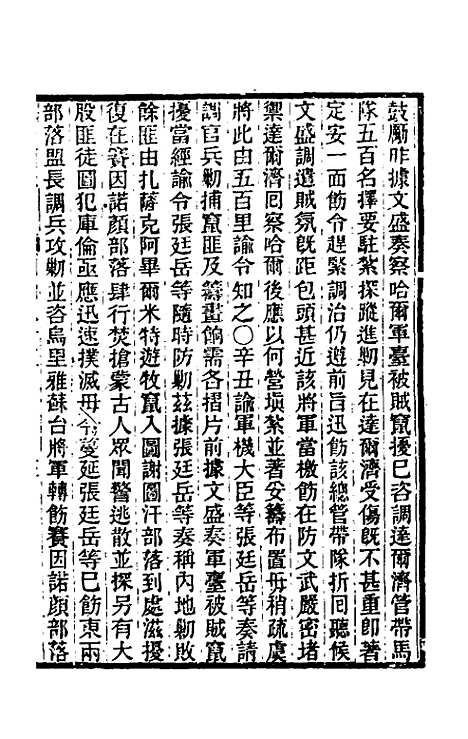 鼓勵昨據文盛奏察哈爾軍臺被賊竄擾已咨調達爾濟管帶馬
隊五百名擇要駐紮探蹤進勦見在達爾濟受傷旣不甚重卽著
定安一面飭令趕緊調治仍遵前旨迅飭該總管帶隊折囘聽候
文盛調遣賊氛旣距包頭甚近該將軍當檄飭在防文武嚴密堵
禦達爾濟囘察哈爾後應以何營塡紮並著妥籌布置毋稍疏虞
將此由五百里諭令知之〇辛丑諭軍機大臣等張廷岳等奏請
調官兵勦捕竄匪及籌畫餉需各摺片前據文盛奏軍臺被賊竄
擾當經諭令張廷岳等隨時防勦茲據張廷岳等奏稱內地勦敗
餘匪由扎薩克阿畢爾米特遊牧竄入圖謝圖汗部落到處滋擾
復在賽因諾顏部落肆行焚搶蒙古人眾聞警逃散並探另有大
股匪徒圖犯庫倫亟應迅速撲滅毋令蔓延張廷岳等已飭東兩
部落盟長調兵攻勦並咨烏里雅蘇台將軍轉飭賽因諾顏部落